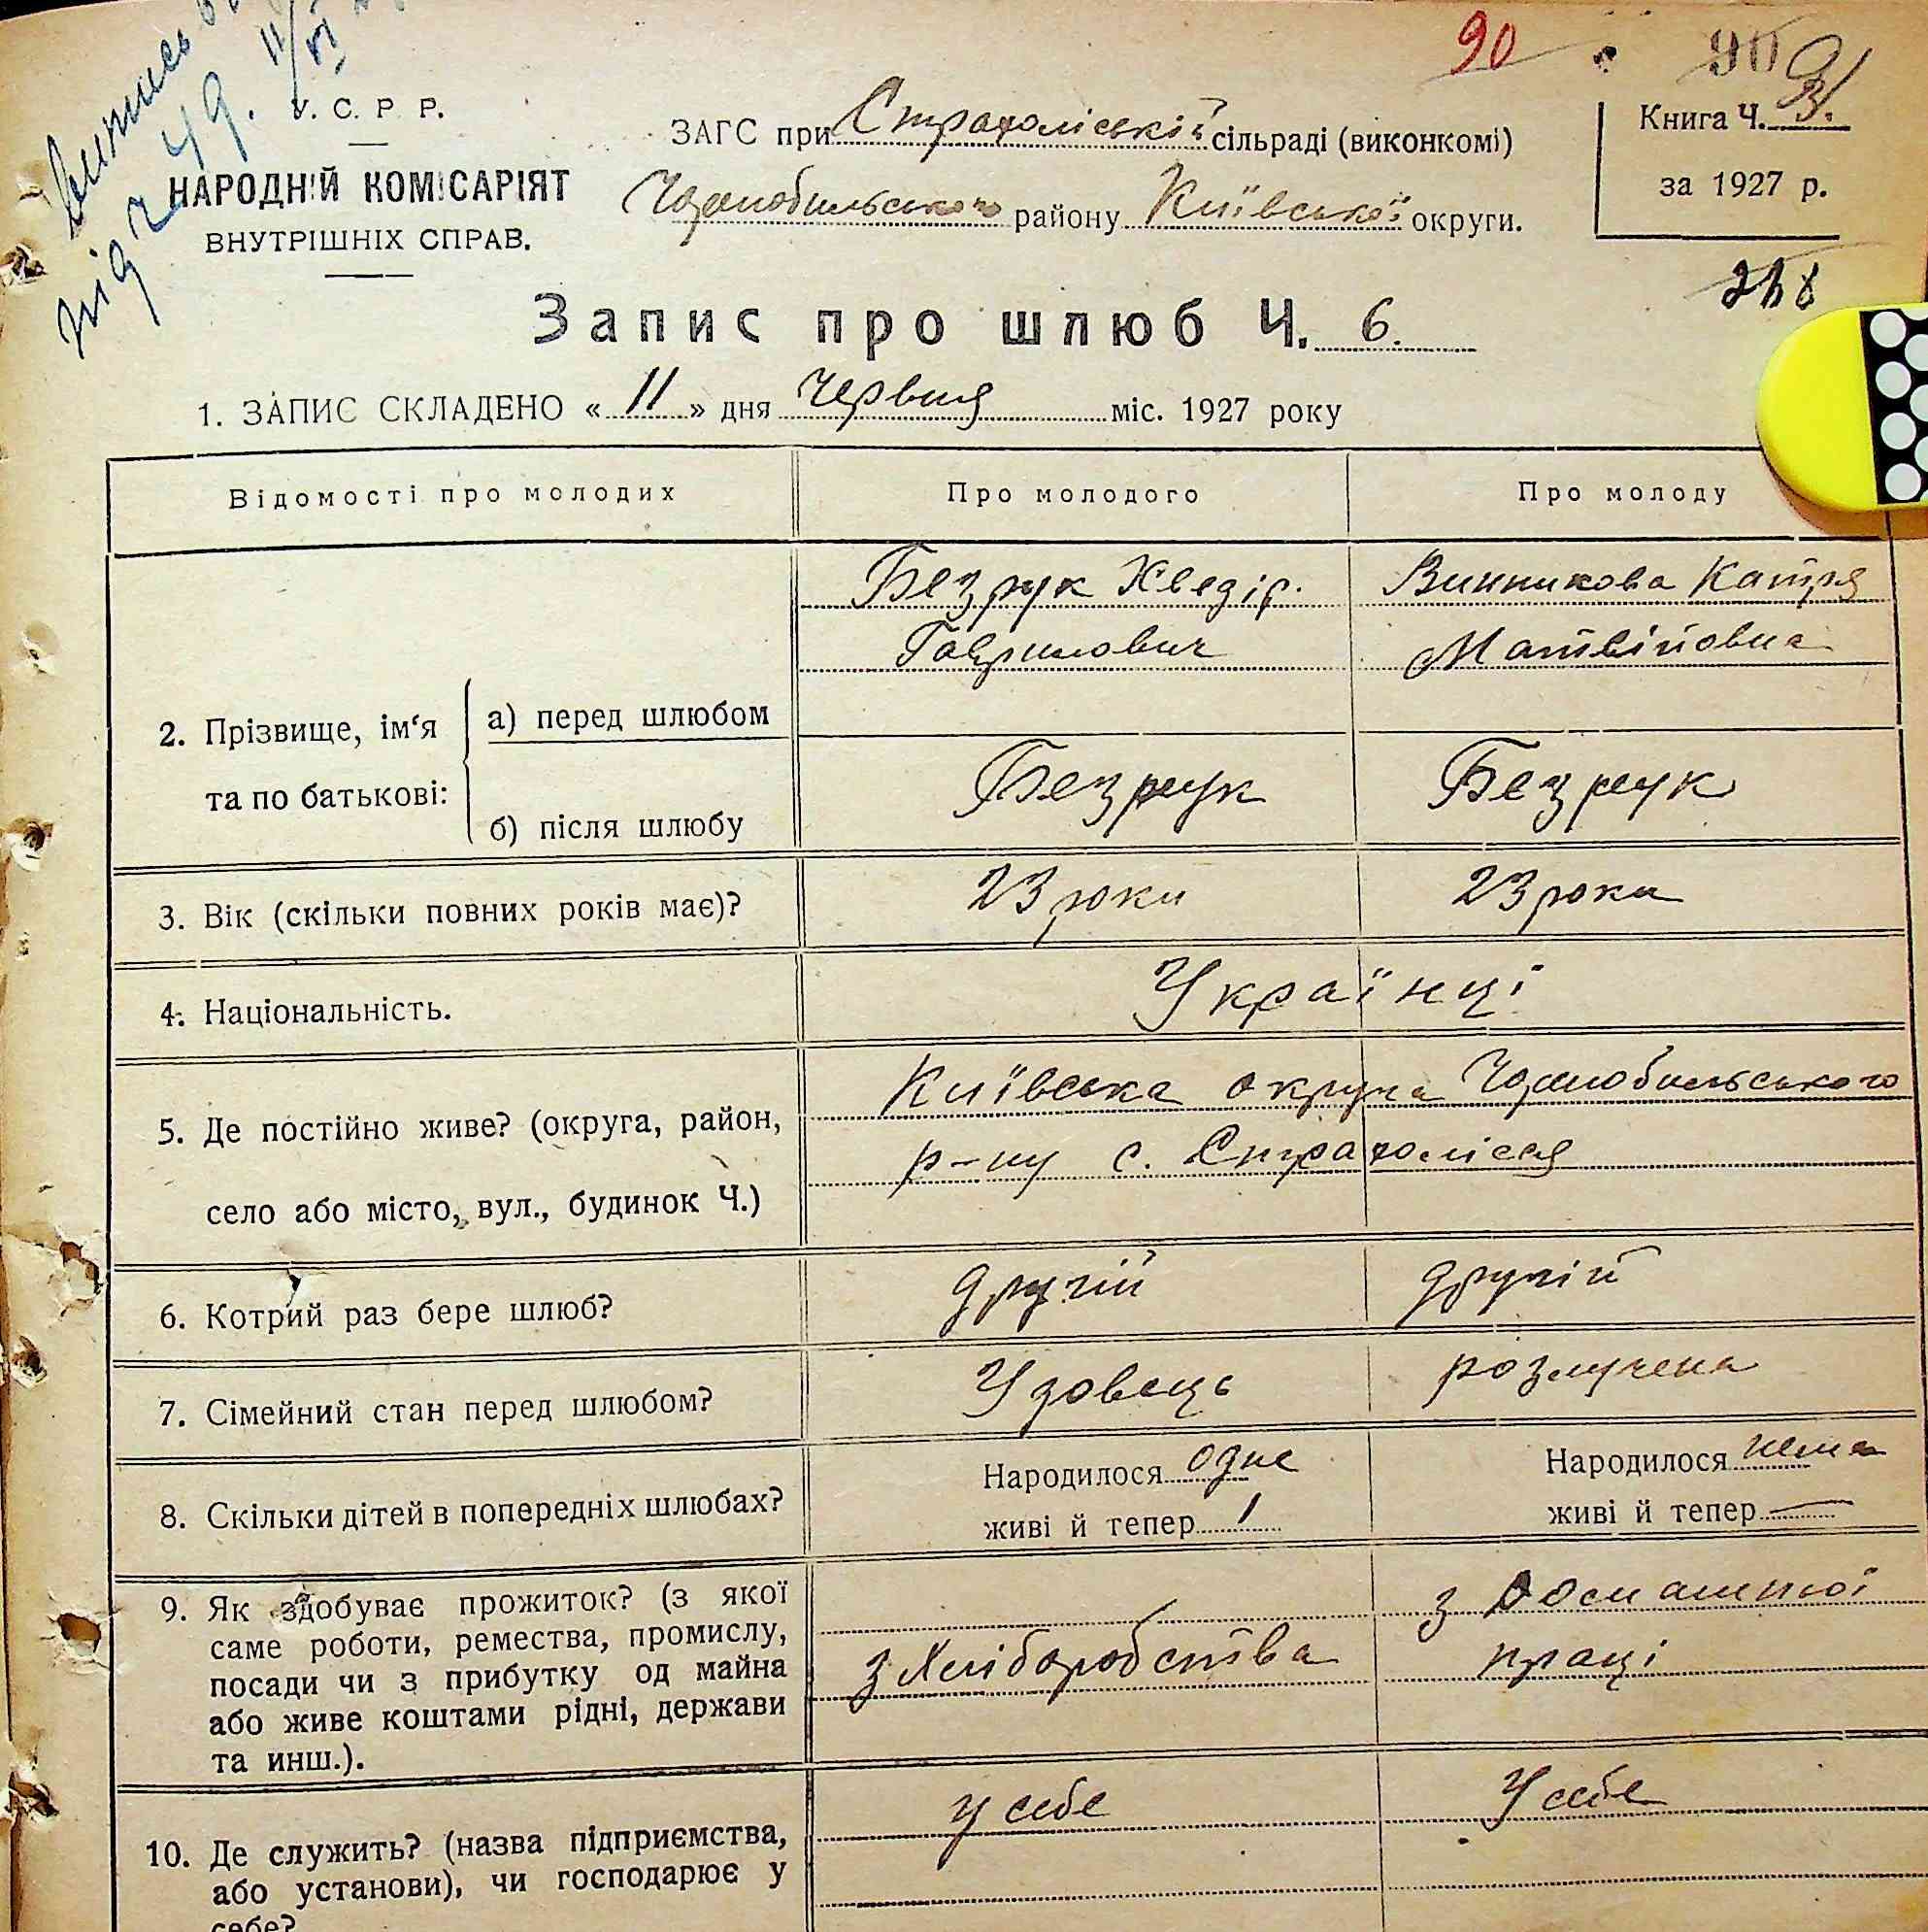 Випись
під ч 49. 11/VI
90
90
91
У. С. Р Р.
НАРОДНІЙ КОМІСАРІЯТ
ВНУТРІШНІХ СПРАВ.
ЗАГС при Страхоліській сільраді (виконкомі)
Чорнобильського району Київської округи.
Книга Ч.
за 1927 р.
Запис про шлюб Ч. 6.
1. ЗАПИС СКЛАДЕНО « 11 » дня Червня міс. 1927 року
Відомості про молодих Про молодого Про молоду
2. Прізвище, ім‘я та по батькові:
а) перед шлюбом
Безрук Хведір.
Гаврилович
Винникова Катря
Матвійовна
б) після шлюбу
Безрук Безрук
3. Вік (скільки повних років має)? 23 роки 23 роки
4. Національність. Українці
5. Де постійно живе? (округа, район,
село або місто, вул., будинок Ч.)
Київська округа Чорнобильського
р-ну с. Страхолісся
6. Котрий раз бере шлюб? другій другій
7. Сімейний стан перед шлюбом? Удовець розлучена
8. Скільки дітей в попередніх шлюбах?
Народилося одне
живі й тепер 1
Народилося нема
живі й тепер —
9. Як здобуває прожиток? (з якої
саме роботи, ремества, промислу,
посади чи з прибутку од майна
або живе коштами рідні, держави
та инш.).
з хліборобства
з домашньої
праці
10. Де служить? (назва підприємства,
або установи), чи господарює у
себе?
у себе У себе